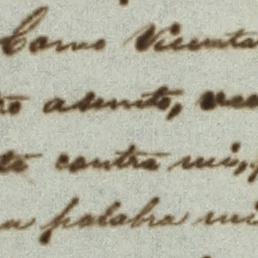 Como Vicenta
asunto,
contra mi,
palabra mi